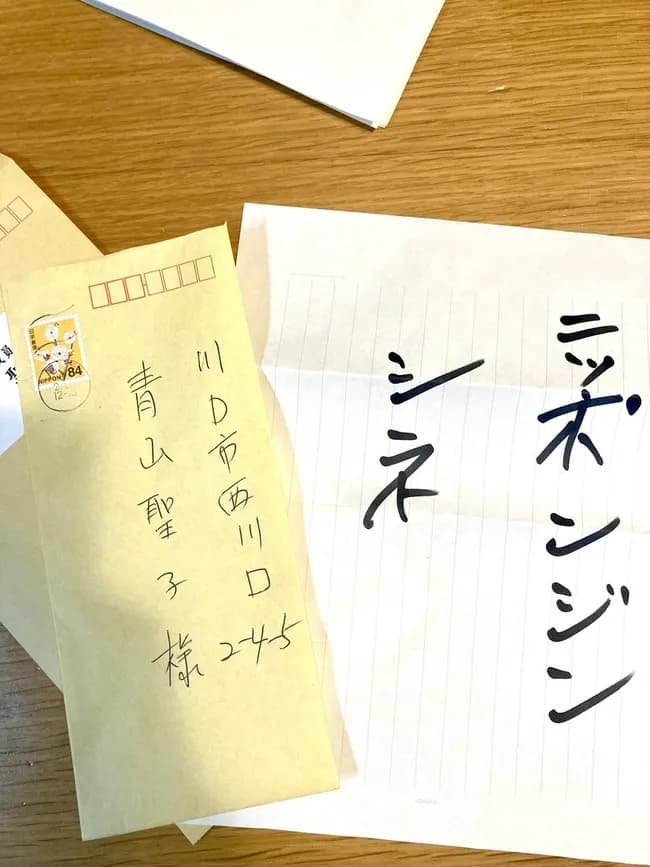 ニッポンジン
シネ
川口市西川口
2-4-5
青山聖子様
NIPPON 84